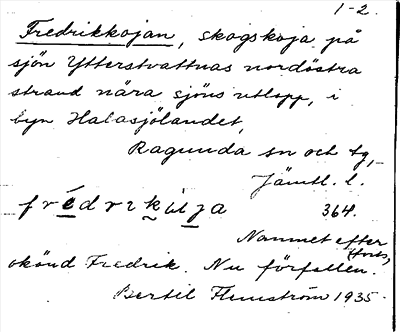 1-2.
Fredrikkojan, skogskoja på
sjön Ytterstvattnas nordöstra
strand nära sjöns utlopp, i
byn Halasjölandet,
Ragunda sn och tg,
Jämtl. l.
364.
Namnet efter
okänd Fredrik. Nu förfallen.
Bertil Flemström 1935.